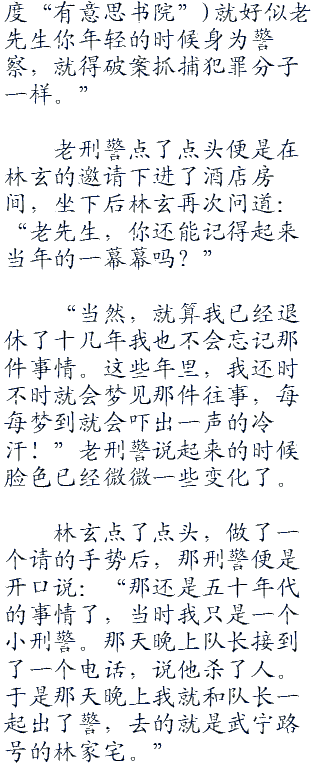 度“有意思书院”)就好似老
先生你年轻的时候身为警
察，就得破案抓捕犯罪分子
一样。”
老刑警点了点头便是在
林玄的邀请下进了酒店房
间，坐下后林玄再次问道：
“老先生，你还能记得起来
当年的一幕幕吗？”
“当然，就算我已经退
休了十几年我也不会忘记那
件事情。这些年里，我还时
不时就会梦见那件往事，每
每梦到就会吓出一声的冷
汗！”老刑警说起来的时候
脸色已经微微一些变化了。
林玄点了点头，做了一
个请的手势后，那刑警便是
开口说：“那还是五十年代
的事情了，当时我只是一个
小刑警。那天晚上队长接到
了一个电话，说他杀了人。
于是那天晚上我就和队长一
起出了警，去的就是武宁路
号的林家宅。”